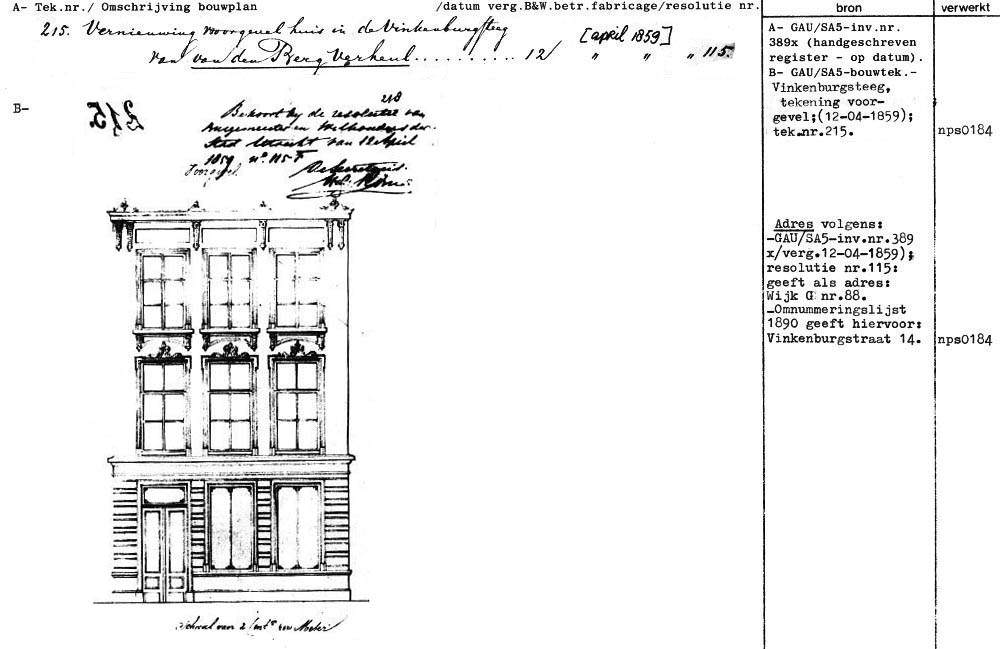 A- Tek.nr./ Omschrijving bouwplan /datum verg.B&W.betr.fabricage/resolutie nr.
bron
verwerkt
215. Vernieuwing voorgevel huis in de Vinkenburgsteg
van van den Berg Verheul .......... 12/ " " " 115.
[april 1859]
B-
215
218
Behoort bij de resolutie van
Burgemeester en Wethouders der
Stad Utrecht van 12 April
1859 nº 115 F
Voorgevel
De Secretaris.
Schaal van 2 Cents per Meter
A- GAU/SA5-inv.nr.
389x (handgeschreven
register - op datum).
B- GAU/SA5-bouwtek.-
Vinkenburgsteeg,
tekening voor-
gevel;(12-04-1859);
tek.nr.215.
nps0184
Adres volgens:
-GAU/SA5-inv.nr.389
x/verg.12-04-1859);
resolutie nr.115:
geeft als adres:
Wijk G nr.88.
-Omnummeringslijst
1890 geeft hiervoor:
Vinkenburgstraat 14.
nps0184